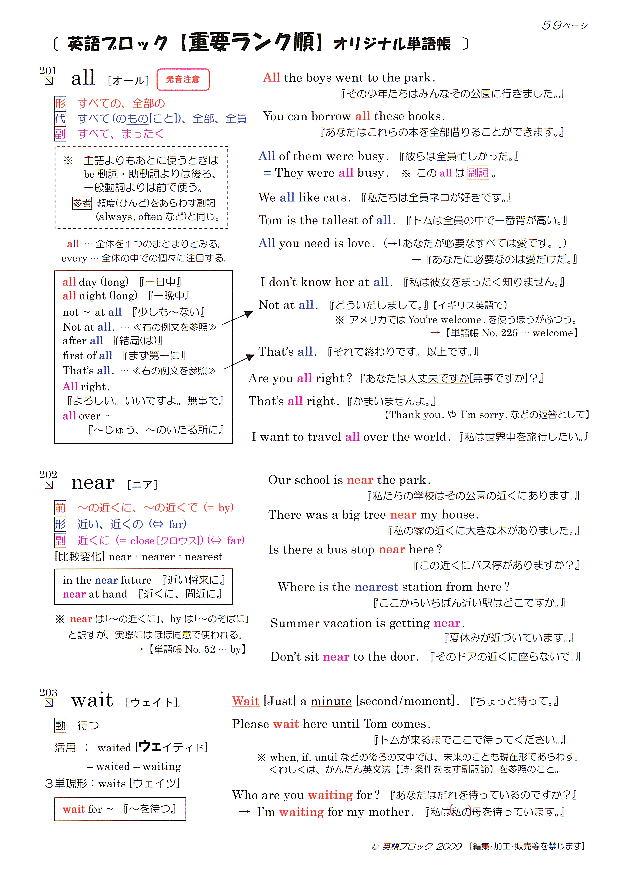 59ページ
〔 英語ブロック【重要ランク順】オリジナル単語帳 〕
201
all [オール] 発音注意
形 すべての、全部の
代 すべて(のもの[こと])、全部、全員
副 すべて、まったく
※ 主語よりもあとに使うときは
be動詞・助動詞よりは後ろ、
一般動詞よりは前で使う。
参考 頻度(ひんど)をあらわす副詞
(always, oftenなど)と同じ。
all … 全体を1つのまとまりとみる。
every … 全体の中での個々に注目する。
all day (long) 『一日中』
all night (long) 『一晩中』
not ~ at all 『少しも~ない』
Not at all. … ≪右の例文を参照≫
after all 『結局(は)』
first of all 『まず第一に』
That's all. … ≪右の例文を参照≫
All right.
『よろしい、いいですよ。無事で』
all over ~
『~じゅう、~のいたる所に』
All the boys went to the park.
『その少年たちはみんなその公園に行きました。』
You can borrow all these books.
『あなたはこれらの本を全部借りることができます。』
All of them were busy. 『彼らは全員忙しかった。』
= They were all busy. ※ この all は副詞。
We all like cats. 『私たちは全員ネコが好きです。』
Tom is the tallest of all. 『トムは全員の中で一番背が高い。』
All you need is love. (→「あなたが必要なすべては愛です。」)
→『あなたに必要なのは愛だけだ。』
I don't know her at all. 『私は彼女をまったく知りません。』
Not at all. 『どういたしまして。』【イギリス英語で】
※ アメリカでは You're welcome. を使うほうがふつう。
→【単語帳 No. 225 … welcome】
That's all. 『それで終わりです。以上です。』
Are you all right? 『あなたは大丈夫ですか[無事ですか]?』
That's all right. 『かまいませんよ。』
【Thank you. や I'm sorry. などの返答として】
I want to travel all over the world. 『私は世界中を旅行したい。』
202
near [ニア]
前 ~の近くに、~の近くで (= by)
形 近い、近くの (⇔ far)
副 近くに (= close[クロウス]) (⇔ far)
[比較変化] near - nearer - nearest
in the near future 『近い将来に』
near at hand 『近くに、間近に』
※ near は「~の近くに」、by は「~のそばに」
と訳すが、実際にはほぼ同意で使われる。
→【単語帳 No. 52 … by】
Our school is near the park.
『私たちの学校はその公園の近くにあります。』
There was a big tree near my house.
『私の家の近くに大きな木がありました。』
Is there a bus stop near here?
『この近くにバス停がありますか?』
Where is the nearest station from here?
『ここからいちばん近い駅はどこですか。』
Summer vacation is getting near.
『夏休みが近づいています。』
Don't sit near to the door. 『そのドアの近くに座らないで。』
203
wait [ウェイト]
動 待つ
活用 : waited [ウェイティド]
– waited – waiting
3単現形:waits [ウェイツ]
wait for ~ 『~を待つ。』
Wait [Just] a minute [second/moment]. 『ちょっと待って。』
Please wait here until Tom comes.
『トムが来るまでここで待ってください。』
※ when, if, until などの後ろの文中では、未来のことも現在形であらわす。
くわしくは、かんたん英文法【時・条件をあらわす副詞節】を参照のこと。
Who are you waiting for? 『あなたはだれを待っているのですか?』
→ I'm waiting for my mother. 『私は(私の)母を待っています。』
© 英語ブロック 2009 【編集・加工・販売等を禁じます】